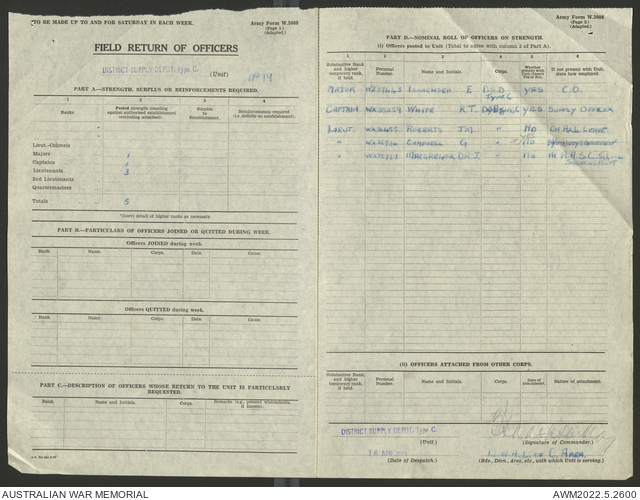 TO BE MADE UP TO AND FOR SATURDAY IN EACH WEEK.
Army Form W.3008
(Page 1.)
(Adapted.)
FIELD RETURN OF OFFICERS
DISTRICT SUPPLY DEPOT, Type C.
(Unit)
PART A.—STRENGTH, SURPLUS OR REINFORCEMENTS REQUIRED.
1 2 3 4
Ranks. Posted strength counting against authorized establishment (excluding attached). Surplus to Establishment. Reinforcements required (i.e. deficits on establishment).
Lieut.-Colonels
Majors 1
Captains 1
Lieutenants 3
2nd Lieutenants
Quartermasters
Totals 5
*Insert detail of higher ranks as necessary.
PART B.—PARTICULARS OF OFFICERS JOINED OR QUITTED DURING WEEK.
Officers JOINED during week.
Rank. Name. Corps. Date. Cause.
Officers QUITTED during week.
Rank. Name. Corps. Date. Cause.
PART C.—DESCRIPTION OF OFFICERS WHOSE RETURN TO THE UNIT IS PARTICULARLY REQUESTED.
Rank. Name and Initials. Corps. Remarks (e.g., present whereabouts, if known).
Army Form W.3008
(Page 2.)
(Adapted.)
PART D.—NOMINAL ROLL OF OFFICERS ON STRENGTH.
(i) Officers posted to Unit (Total to agree with column 2 of Part A).
1 2 3 4 5 6
Substantive Rank and higher temporary rank, if held. Personal Number. Name and Initials. Corps. If not present with Unit, state how employed.
MAJOR E DSD Type C YES C.O.
CAPTAIN WX30259 WHITE R.T. YES SUPPLY OFFICER
LIEUT. ROBERTS J.M. " NO ON A&L LEAVE.
" CAMPBELL G " NO
" MACGREGOR D.H.J. " NO
(ii) OFFICERS ATTACHED FROM OTHER CORPS.
Substantive Rank and higher temporary rank, if held. Personal Number. Name and Initials. Corps. Date of attachment. Nature of attachment.
DISTRICT SUPPLY DEPOT, Type C.
(Unit.)
(Signature of Commander.)
(Date of Despatch.)
(Bde., Divn., Area, etc., with which Unit is serving.)
AUSTRALIAN WAR MEMORIAL
AWM2022.5.2600